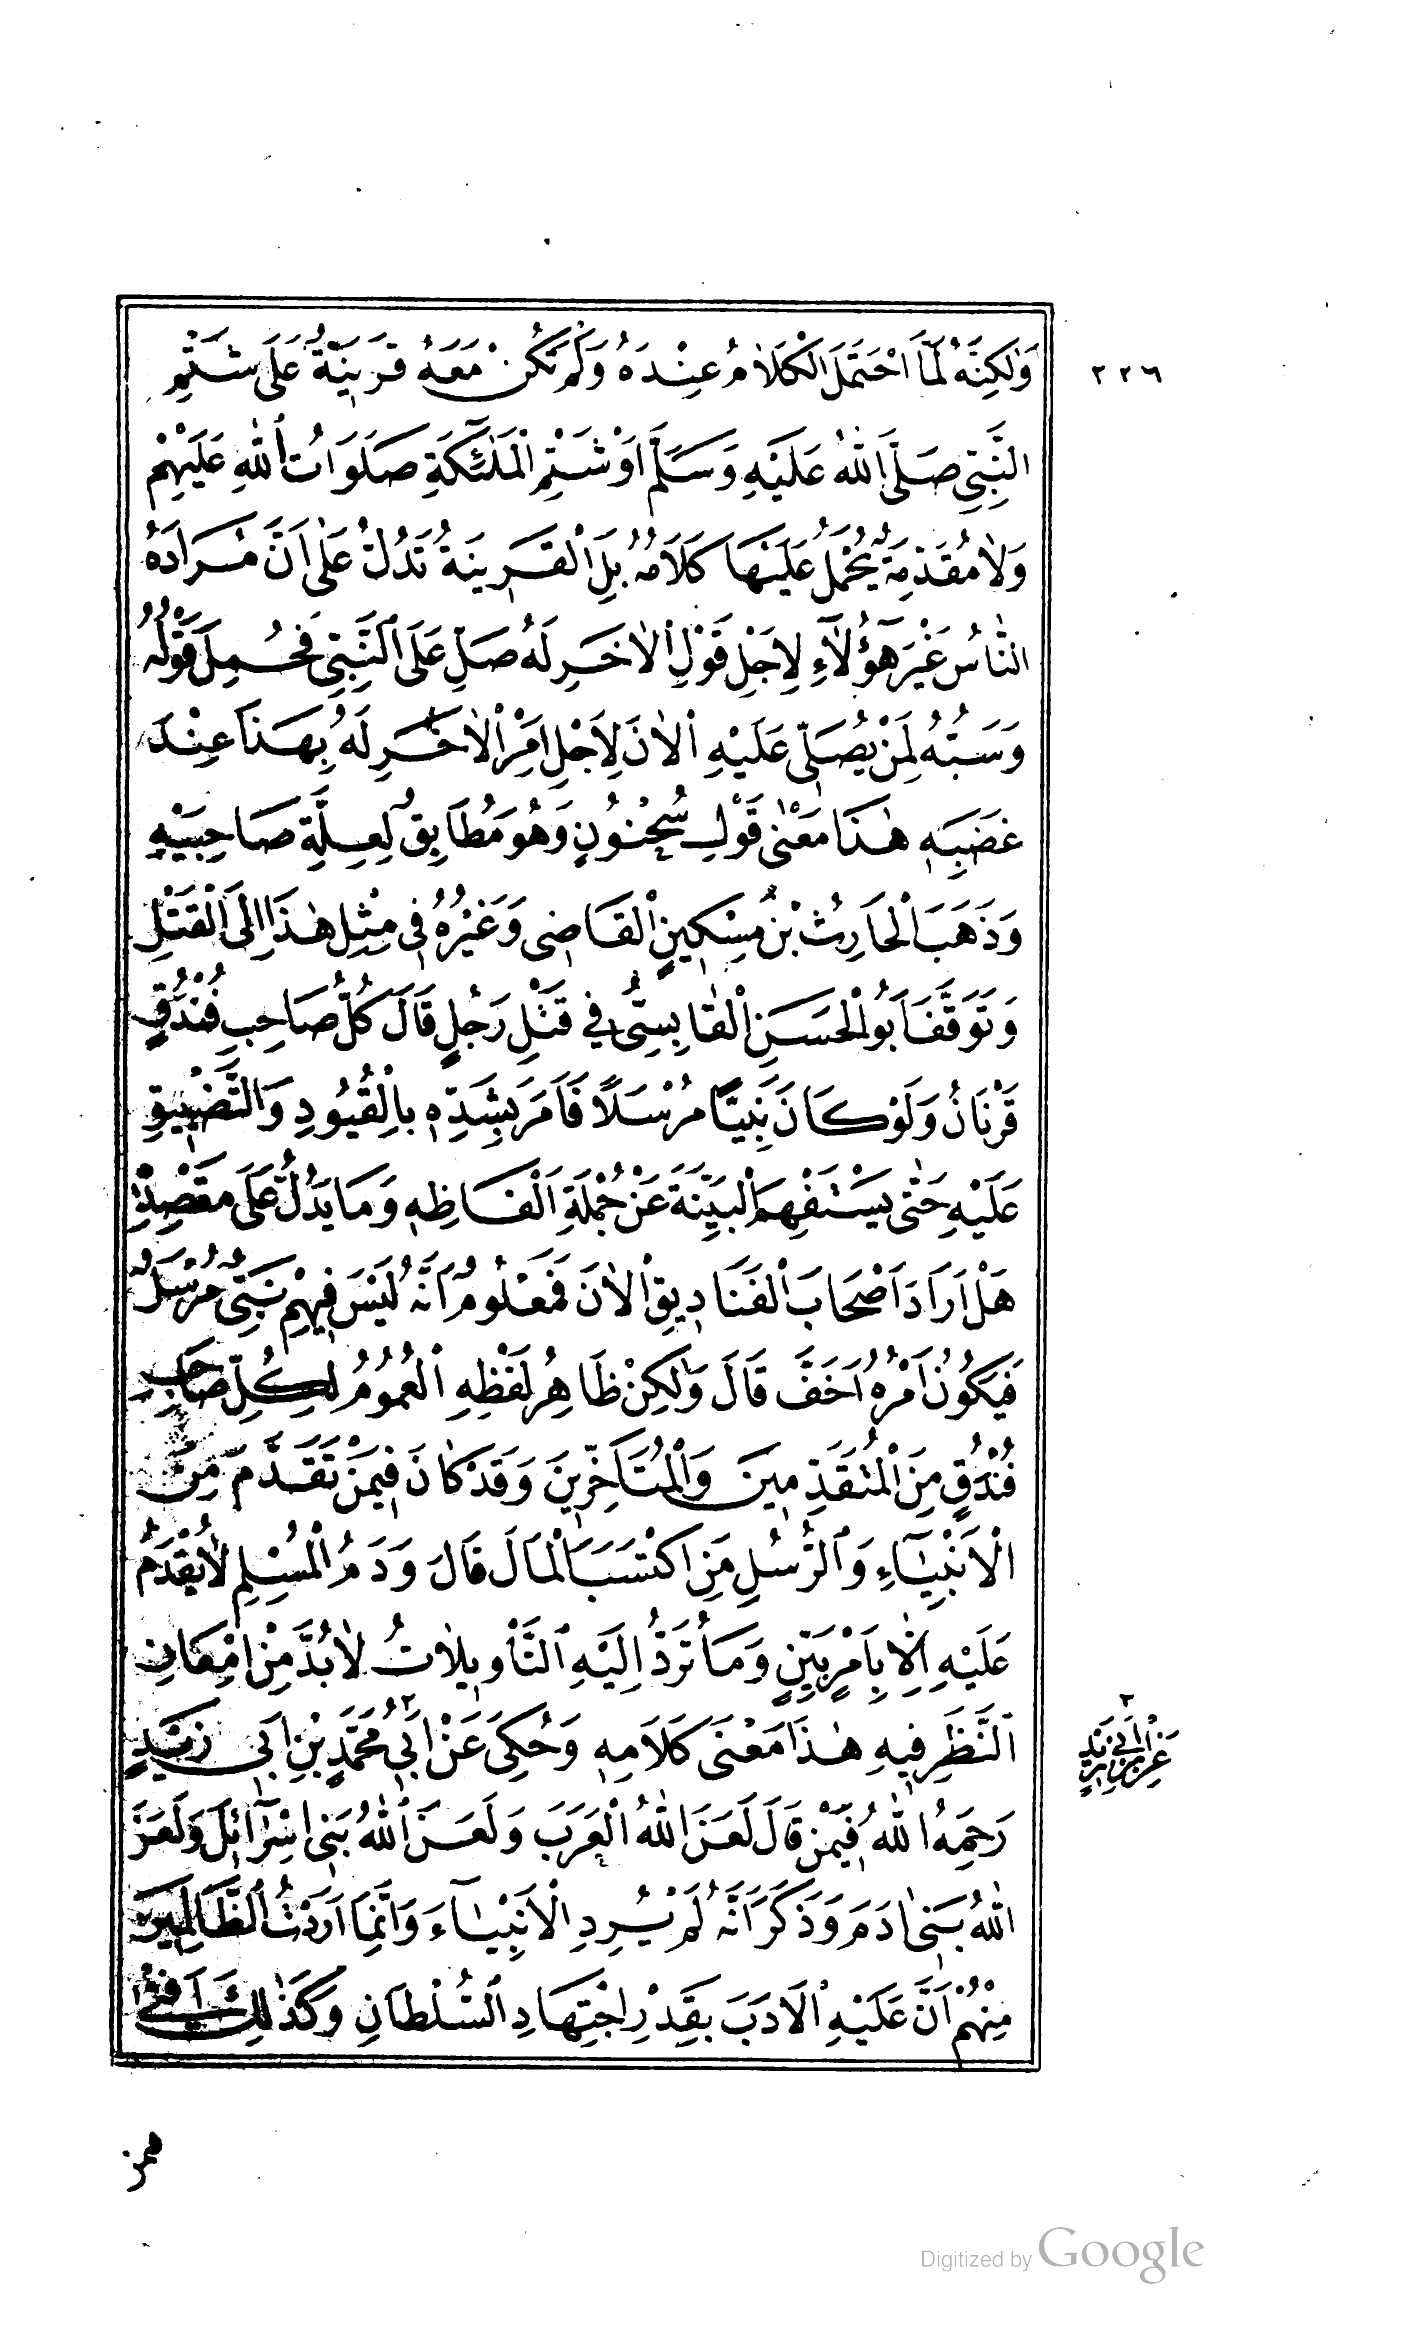 ٢٢٦
وَلٰكِنَّهُ لَمَّا احْتَمَلَ الْكَلَامُ عِنْدَهُ وَلَمْ تَكُنْ مَعَهُ قَرِينَةٌ عَلَى شَتْمِ
النَّبِيِّ صَلَّى اللّٰهُ عَلَيْهِ وَسَلَّمَ اَوْ شَتْمِ الْمَلٰئِكَةِ صَلَوَاتُ اللّٰهِ عَلَيْهِمْ
وَلَا مُقَدِّمَةٌ يُحْمَلُ عَلَيْهَا كَلَامُهُ بَلِ الْقَرِينَةُ تَدُلُّ عَلٰى اَنَّ مُرَادَهُ
النَّاسُ غَيْرَ هٰٓؤُلَاۤءِ لِاَجْلِ قَوْلِ الْاٰخَرِ لَهُ صَلِّ عَلَى النَّبِيِّ فَحُمِلَ قَوْلُهُ
وَسَبُّهُ لِمَنْ يُصَلِّي عَلَيْهِ الْاٰنَ لِاَجْلِ اَمْرِ الْاٰخَرِ لَهُ بِهٰذَا عِنْدَ
غَضَبِهِ هٰذَا مَعْنٰى قَوْلِ سُحْنُونٍ وَهُوَ مُطَابِقٌ لِعِلَّةِ صَاحِبَيْهِ
وَذَهَبَ الْحَارِثُ بْنُ مِسْكِينٍ الْقَاضِي وَغَيْرُهُ فِي مِثْلِ هٰذَا اِلَى الْقَتْلِ
وَتَوَقَّفَ اَبُو الْحَسَنِ الْقَابِسِيُّ فِي قَتْلِ رَجُلٍ قَالَ كُلُّ صَاحِبِ فُنْدُقٍ
قَرْنَانُ وَلَوْ كَانَ نَبِيًّا مُرْسَلًا فَاَمَرَ بِشَدِّهِ بِالْقُيُودِ وَالتَّضْيِيقِ
عَلَيْهِ حَتّٰى يَسْتَفْهِمَ الْبَيِّنَةَ عَنْ جُمْلَةِ اَلْفَاظِهِ وَمَا يَدُلُّ عَلَى مَقْصِدِهِ
هَلْ اَرَادَ اَصْحَابَ الْفَنَادِيقِ الْاٰنَ فَمَعْلُومٌ اَنَّهُ لَيْسَ فِيهِمْ نَبِيٌّ مُرْسَلٌ
فَيَكُونُ اَمْرُهُ اَخَفَّ قَالَ وَلٰكِنْ ظَاهِرُ لَفْظِهِ الْعُمُومُ لِكُلِّ صَاحِبِ
فُنْدُقٍ مِنَ الْمُتَقَدِّمِينَ وَالْمُتَاَخِّرِينَ وَقَدْ كَانَ فِيمَنْ تَقَدَّمَ مِنَ
الْاَنْبِيَاۤءِ وَالرُّسُلِ مَنِ اكْتَسَبَ الْمَالَ قَالَ وَدَمُ الْمُسْلِمِ لَا يُقْدَمُ
عَلَيْهِ اِلَّا بِاَمْرٍ بَيِّنٍ وَمَا تُرَدُّ اِلَيْهِ التَّأْوِيلَاتُ لَا بُدَّ مِنْ اِمْعَانِ
النَّظَرِ فِيهِ هٰذَا مَعْنَى كَلَامِهِ وَحُكِيَ عَنْ اَبِي٢ مُحَمَّدِ بْنِ اَبِي زَيْدٍ
٢
رَحِمَهُ اللّٰهُ فِيمَنْ قَالَ لَعَنَ اللّٰهُ الْعَرَبَ وَلَعَنَ اللّٰهُ بَنِي اِسْرَاۤئِلَ وَلَعَنَ
اللّٰهُ بَنِي اٰدَمَ وَذَكَرَ اَنَّهُ لَمْ يُرِدِ الْاَنْبِيَاۤءَ وَاِنَّمَا اَرَدْتُ الظَّالِمِينَ
مِنْهُمْ اَنَّ عَلَيْهِ الْاَدَبَ بِقَدْرِ اجْتِهَادِ السُّلْطَانِ وَكَذٰلِكَ اَفْتَى
Digitized by Google